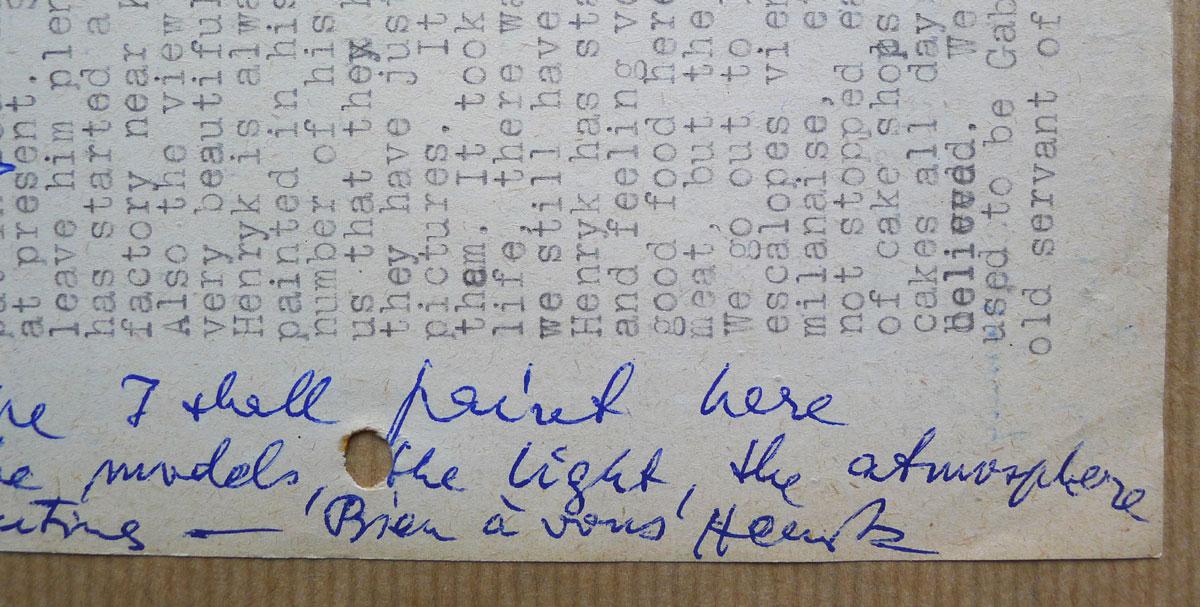 at present.
leave him ple
has started a
factory near
Also the view
very beautiful
Henryk is alwa
painted in his
number of his
us that they
they have jus
pictures. It
them. It took
life, there wa
we still have
Henryk has sta
and feeling ve
good food here
meat, but the
We go out to
escalopes vien
milanaise, e
not stopped ea
of cake shops
cakes all day
believed. We
used to be Gab
old servant of
I shall paint here
models, the light, the atmosphere
— Bien à vous Henryk